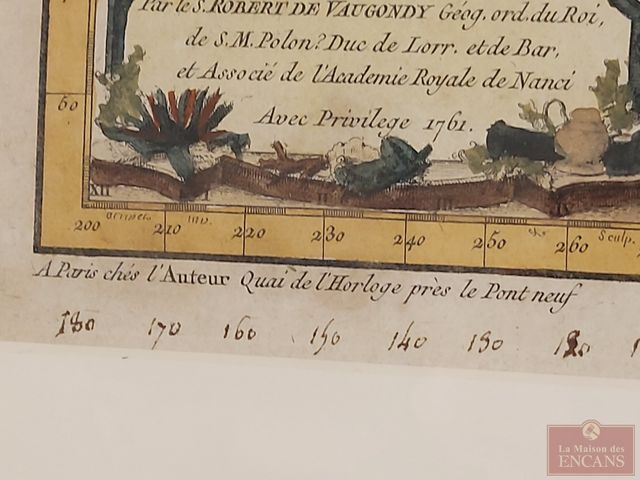 Par le S. ROBERT DE VAUGONDY Géog. ord. du Roi,
de S. M. Polon.? Duc de Lorr. et de Bar,
et Associé de l'Academie Royale de Nanci
Avec Privilege 1761.
60
XII I II III
200 210 220 230 240 250 260
inv. Sculp.
A Paris chés l'Auteur Quai de l'Horloge près le Pont neuf
180 170 160 150 140 130 120
La Maison des
ENCANS